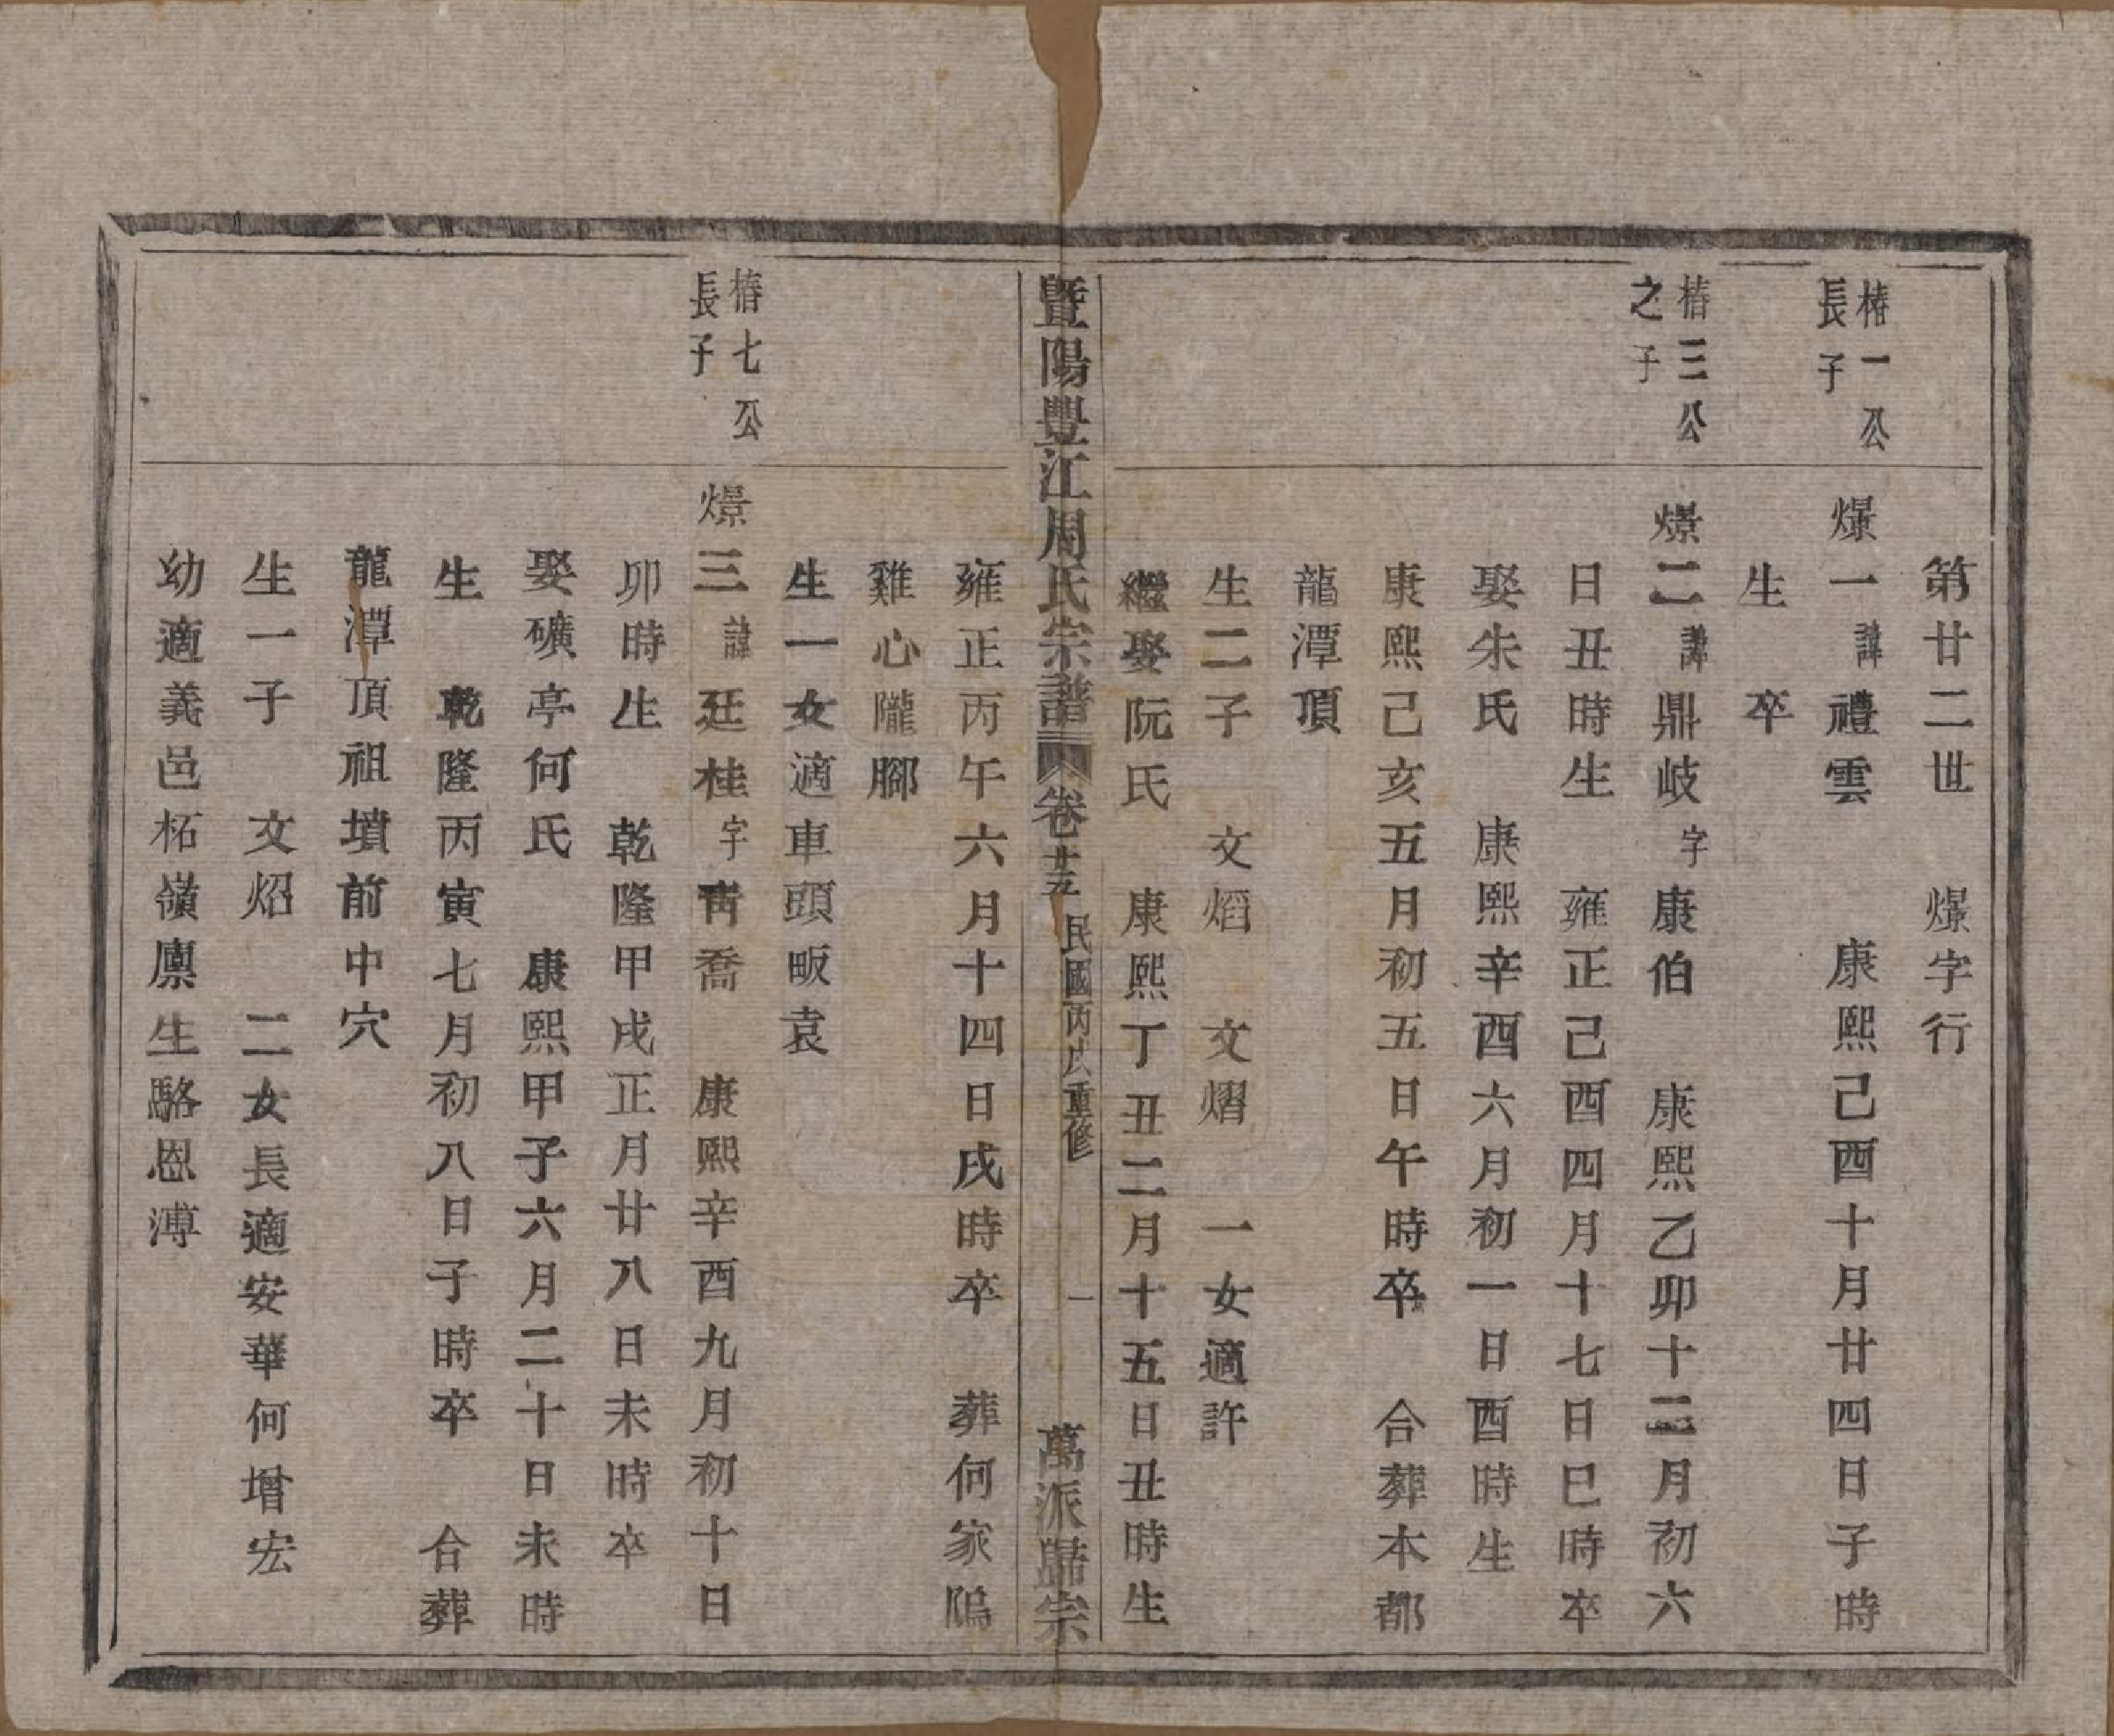 第廿二世　燝字行
椿一公
長子
燝一諱禮雲　康熙己酉十月廿四日子時
生　卒
椿三公
之子
燝二諱鼎岐字康伯　康熙乙卯十二月初六
日丑時生　雍正己酉四月十七日巳時卒
娶朱氏　康熙辛酉六月初一日酉時生
康熙己亥五月初五日午時卒　合葬本都
龍潭頂
生二子　文熖　文熠　一女適許
繼娶阮氏　康熙丁丑二月十五日丑時生
暨陽豐江周氏宗譜　卷廿五　民國丙戌重修　一　萬派歸宗
雍正丙午六月十四日戌時卒　葬何家隖
雞心隴腳
生一女適車頭畈袁
椿七公
長子
燝三諱廷桂字青喬　康熙辛酉九月初十日
卯時生　乾隆甲戌正月廿八日未時卒
娶礦亭何氏　康熙甲子六月二十日未時
生　乾隆丙寅七月初八日子時卒　合葬
龍潭頂祖墳前中穴
生一子　文炤　二女長適安華何增宏
幼適義邑柘嶺廪生駱恩溥